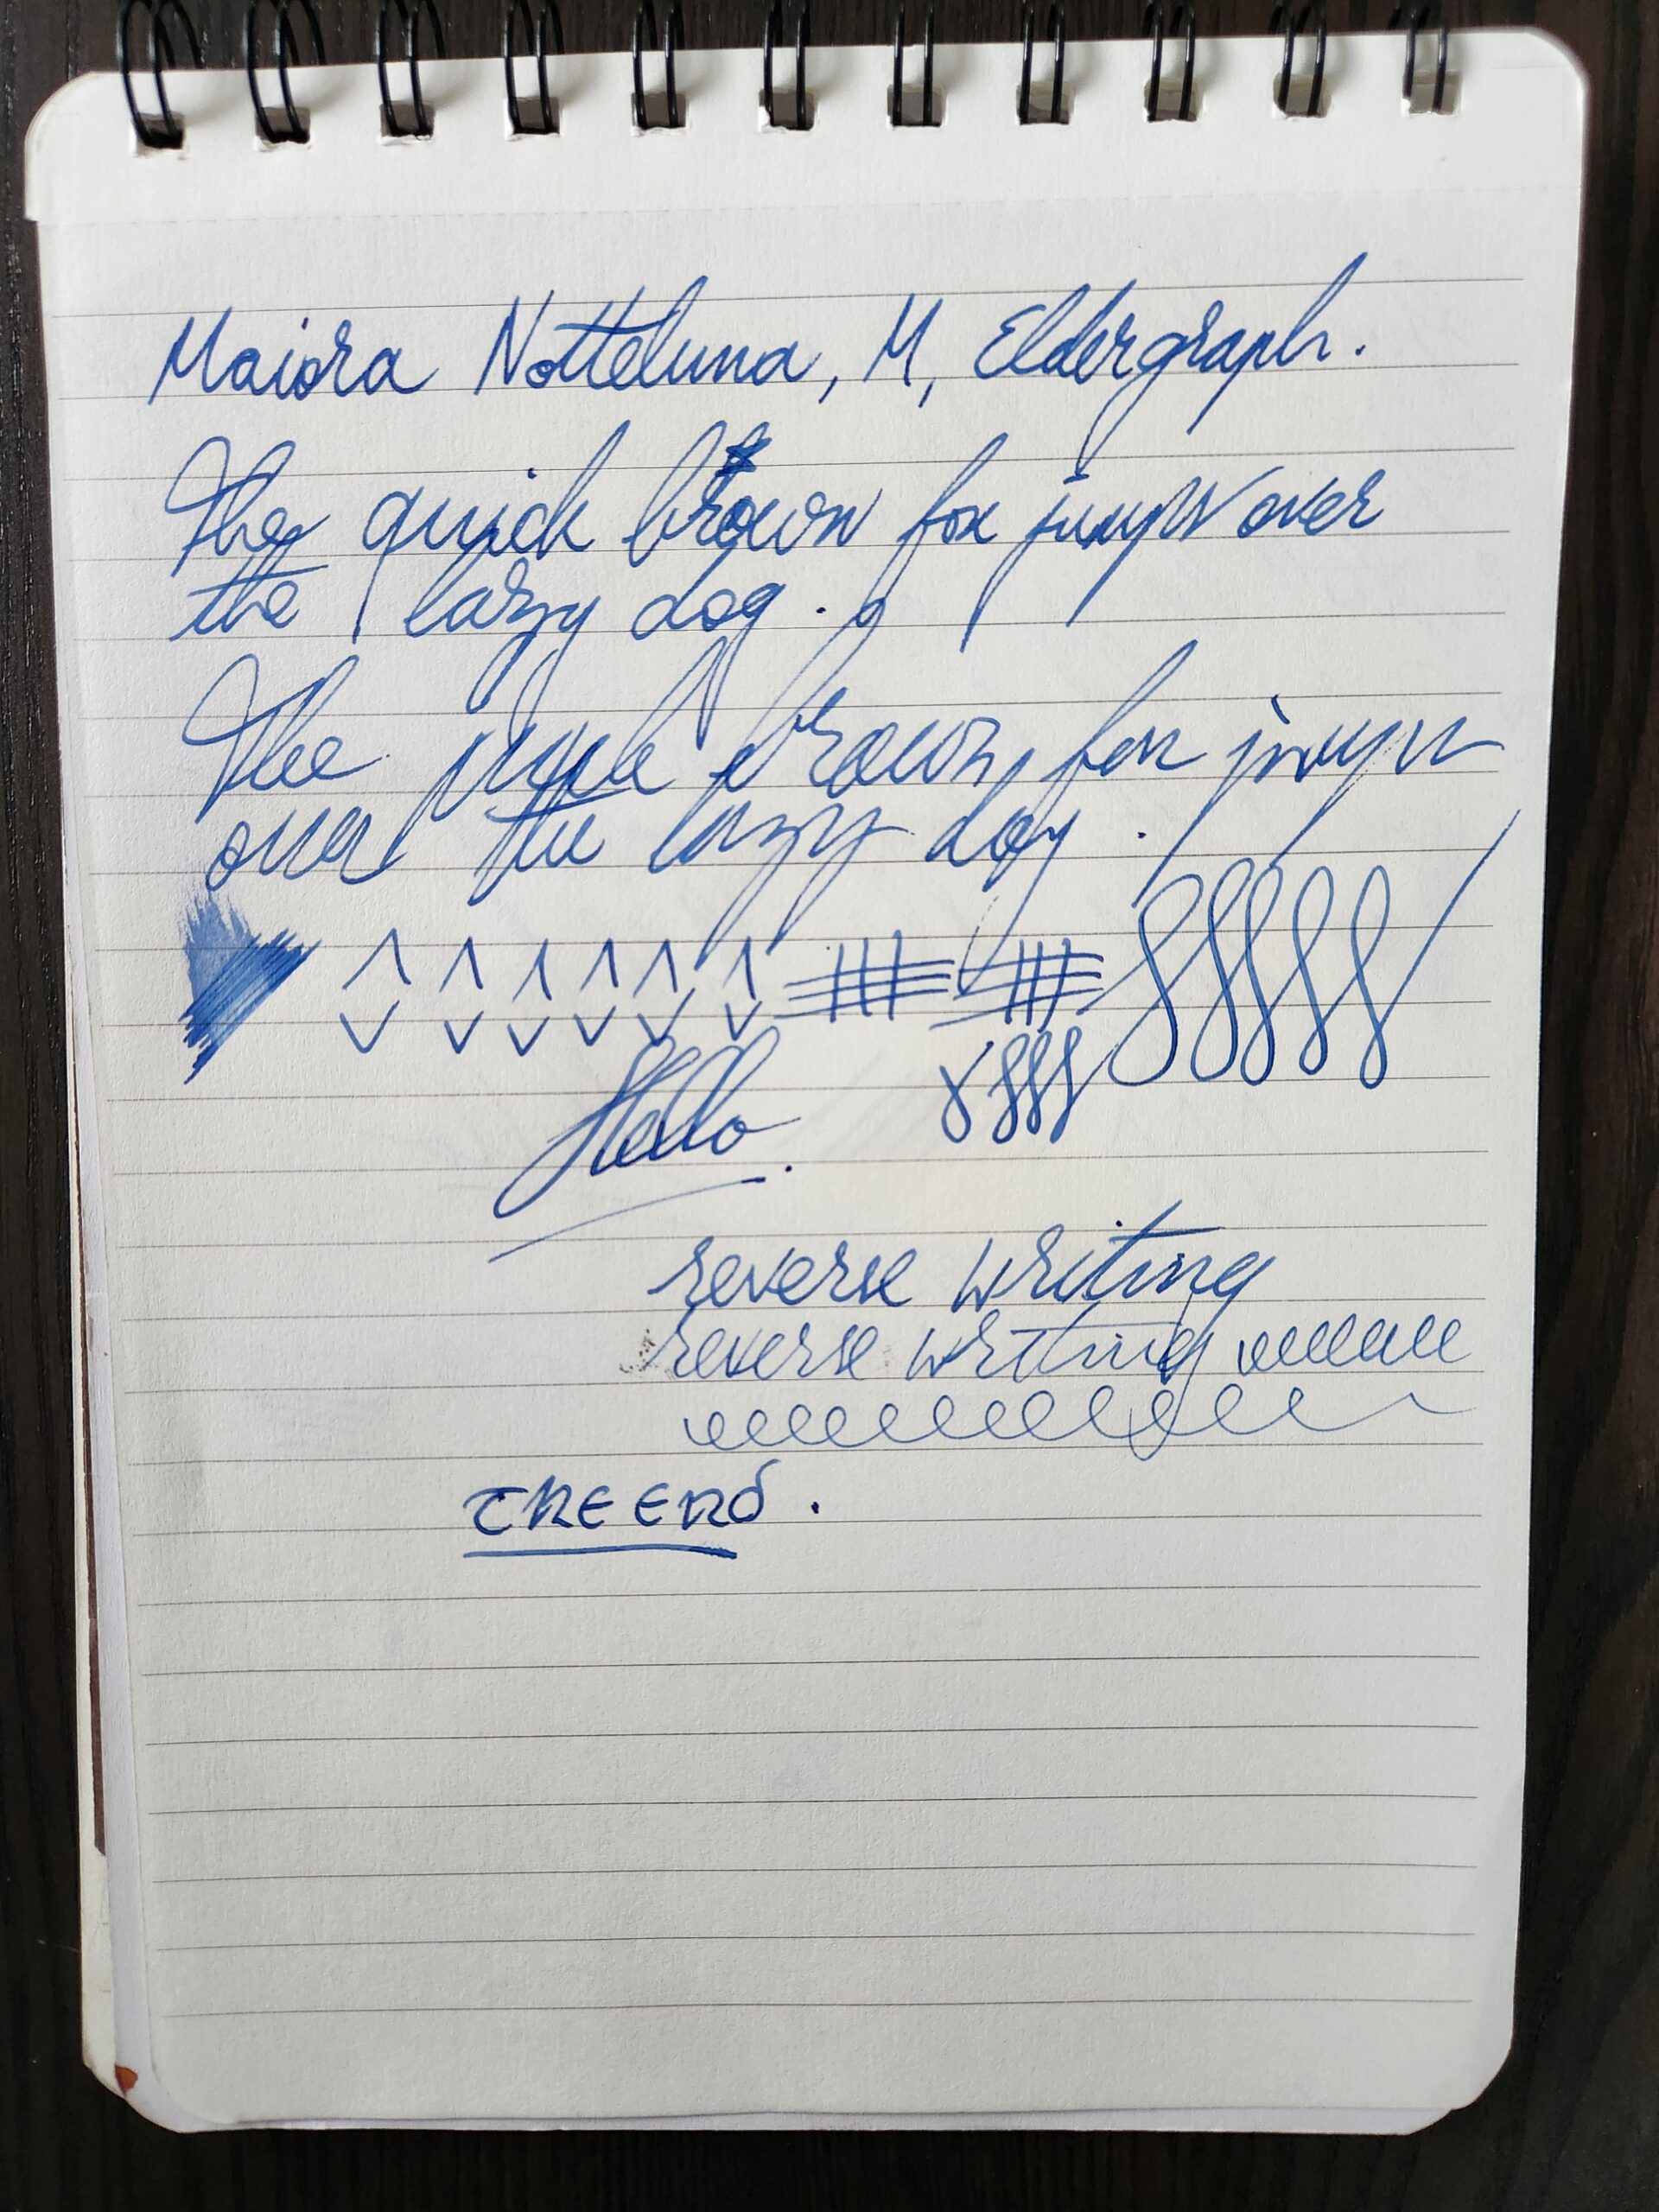 Maiora Notteluna, M, Eldergraph.
The quick brown fox jumps over
the lazy dog.
The quick brown fox jumps
over the lazy dog.
Hello.
reverse writing
reverse writing
THE END.